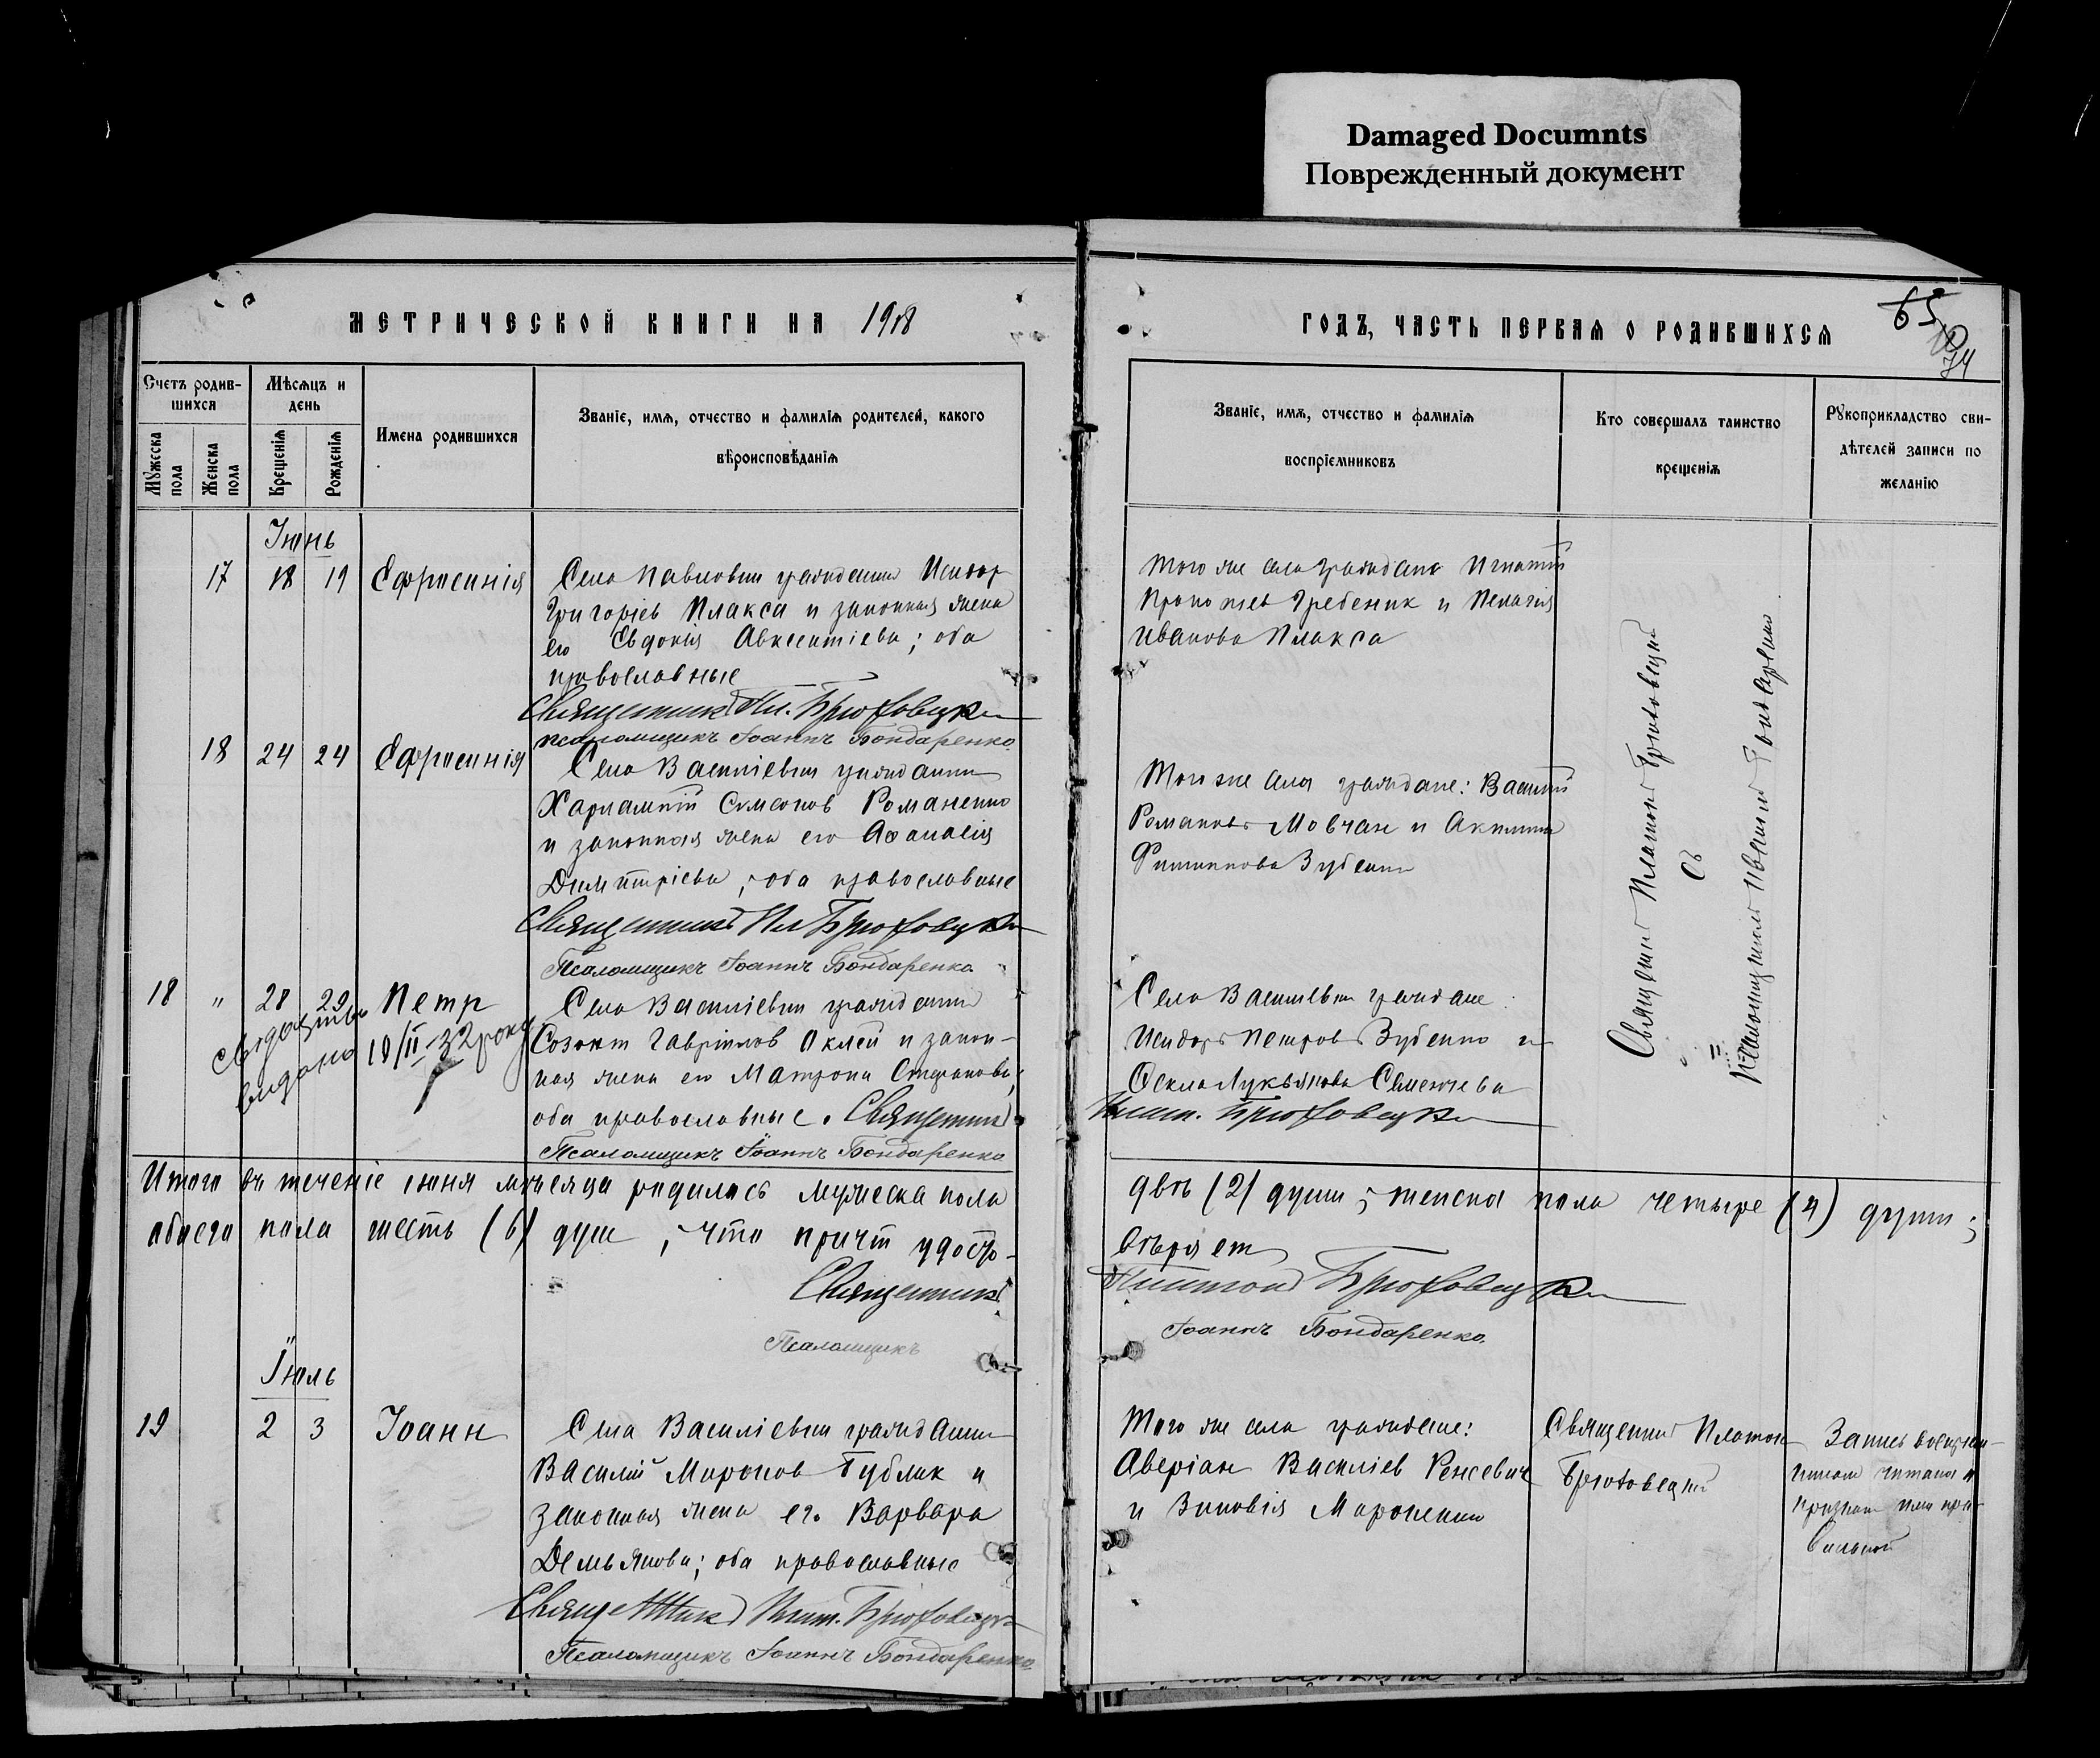 Damaged Documnts
Поврежденный документ
МЕТРИЧЕСКОЙ КНИГИ НА 1918
ГОДЪ, ЧАСТЬ ПЕРВАЯ О РОДИВШИХСЯ
65
74
Счетъ родив-
шихся
Мѣсяцъ и
день
Мужеска
пола
Женска
пола
Крещенія
Рожденія
Имена родившихся
Званіе, имя, отчество и фамилія родителей, какого
вѣроисповѣданія
Званіе, имя, отчество и фамилія
воспріемниковъ
Кто совершалъ таинство
крещенія
Рукоприкладство сви-
дѣтелей записи по
желанію
Іюнь
17 18 19 Ефросинія
Села Павловки гражданин Исидор
Григоріев Плакса и законная жена
его Евдокія Авксентіева; оба
православные
Священник Пл. Брюховецкий
Псаломщикъ Іоаннъ Бондаренко
Того же села граждане Игнатий
Гребеник и Пелагия
Иванова Плакса
18 24 24 Ефросинія
Села Василіевки гражданин
Харлампий Симеонов Романенко
и законная жена его Афанасия
Димитріева; оба православные
Священник Пл Брюховецкий
Псаломщикъ Іоаннъ Бондаренко
Того же села граждане: Василий
Романов Мовчан и Акилина
Филиппова Зубенко
18 " 28 29 Петр
видано 19/II-32 року
Села Василіевки гражданин
Созонт Гавріилов Оклей и закон-
ная жена его Матрона Стефанова;
оба православные. Священник
Псаломщикъ Іоаннъ Бондаренко
Села Василіевки граждане:
Исидор Петров Зубенко и
Фекла Лукьянова
Плат. Брюховецкий
Священник Платон Брюховецкий
съ
Псаломщиком Иваном Бондаренко
Итого въ теченіе іюня мѣсяца родилось мужеска пола
двѣ (2) души; женска пола четыре (4) души;
обоего пола шесть (6) душ, что причт удосто-
вѣряет
Священник
Платон Брюховецкий
Псаломщикъ
Іоаннъ Бондаренко
Іюль
19 2 3 Іоанн
Села Василіевки гражданин
Василій Миронов Бублик и
законная жена его Варвара
Демьянова; оба православные
Священник Плат. Брюховецкий
Псаломщикъ Іоаннъ Бондаренко
Того же села граждане:
Аверіан Василіев
и Зиновія Мироненко
Священник Платон
Брюховецкий
Запись
читана и